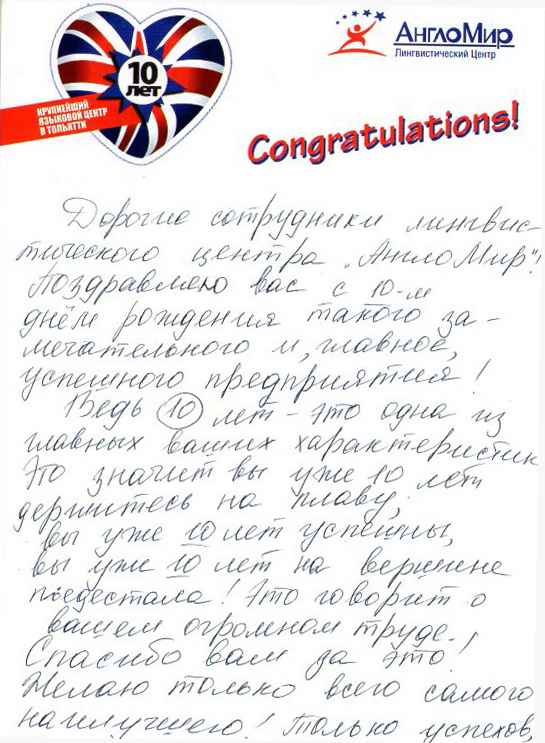 10
ЛЕТ
КРУПНЕЙШИЙ
ЯЗЫКОВОЙ ЦЕНТР
В ТОЛЬЯТТИ
АНГЛОМИР
Лингвистический Центр
Congratulations!
Дорогие сотрудники лингвис-
тического центра "АнглоМир"!
Поздравляю вас с 10-м
днём рождения такого за-
мечательного и, главное,
успешного предприятия!
Ведь 10 лет - это одна из
главных ваших характеристик
Это значит вы уже 10 лет
держитесь на плаву,
вы уже 10 лет успешны,
вы уже 10 лет на вершине
пьедестала! Это говорит о
вашем огромном труде.
Спасибо вам за это!
Желаю только всего самого
наилучшего! Только успехов,